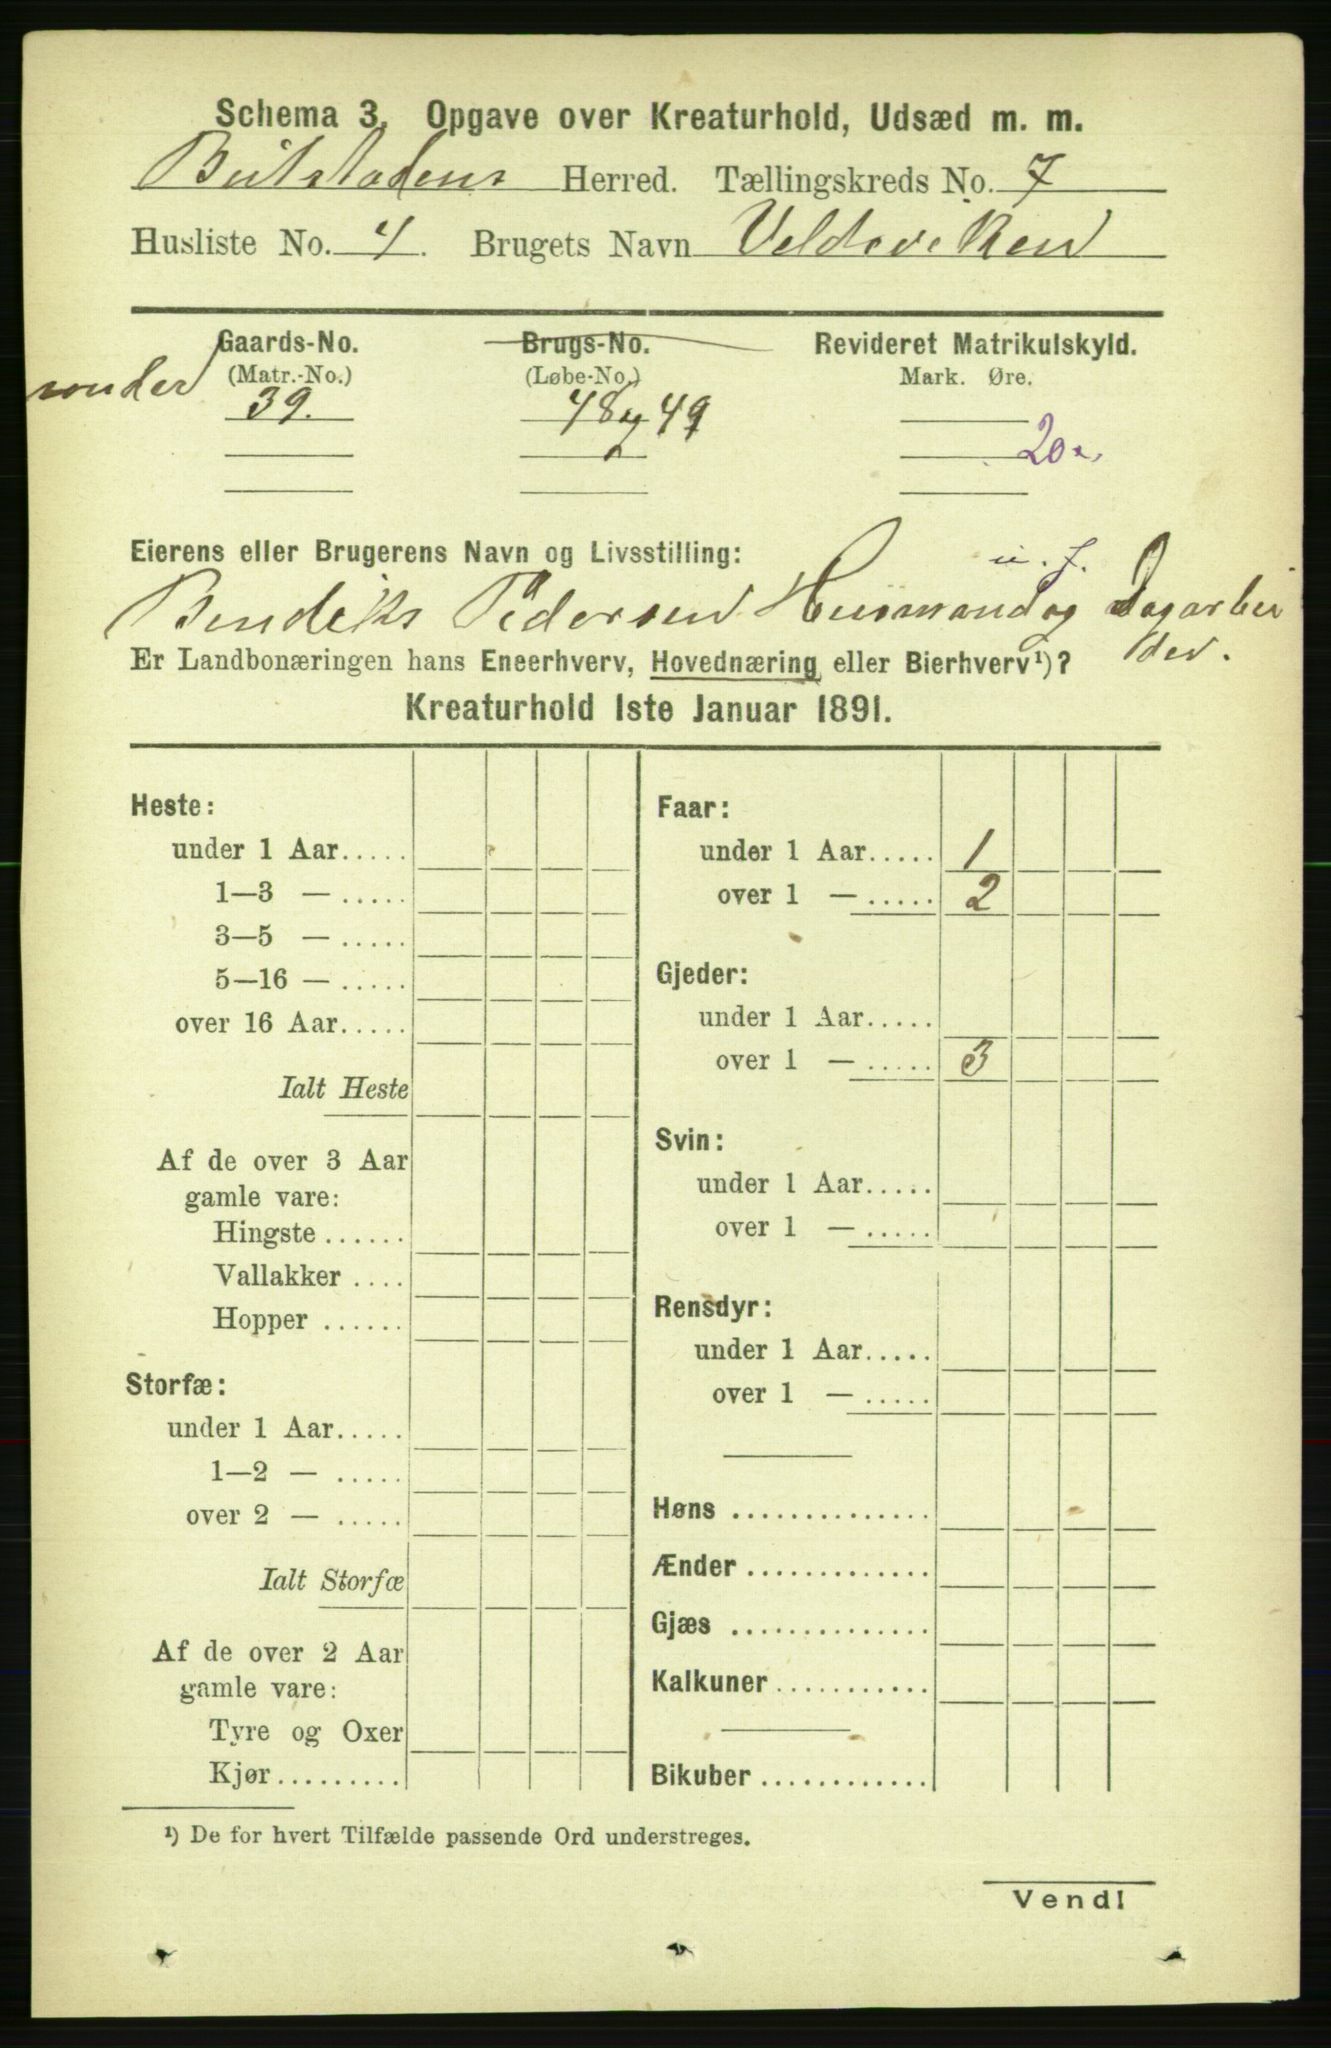 Schema 3. Opgave over Kreaturhold, Udsæd m. m.
Beitstadens Herred. Tællingskreds No. 7
Husliste No. 4. Brugets Navn Veldsviken
Gaards-No. Brugs-No. Revideret Matrikulskyld.
(Matr.-No.) (Løbe-No.) Mark. Øre.
under 39. 48 og 49
20
Eierens eller Brugerens Navn og Livsstilling: u. j.
Bendiks Pedersen Husmand og Dagarbei
der.
Er Landbonæringen hans Eneerhverv, Hovednæring eller Bierhverv¹)?
Kreaturhold 1ste Januar 1891.
Heste:
under 1 Aar.....
1—3 — .....
3—5 — .....
5—16 — .....
over 16 Aar.....
Ialt Heste
Af de over 3 Aar
gamle vare:
Hingste ......
Vallakker ....
Hopper ......
Storfæ:
under 1 Aar.....
1—2 — .....
over 2 — .....
Ialt Storfæ
Af de over 2 Aar
gamle vare:
Tyre og Oxer
Kjør.........
Faar:
under 1 Aar..... 1
over 1 — ..... 2
Gjeder:
under 1 Aar.....
over 1 — ..... 3
Svin:
under 1 Aar.....
over 1 — .....
Rensdyr:
under 1 Aar.....
over 1 — .....
Høns ..............
Ænder .............
Gjæs ..............
Kalkuner ...........
Bikuber .............
¹) De for hvert Tilfælde passende Ord understreges.
Vend!